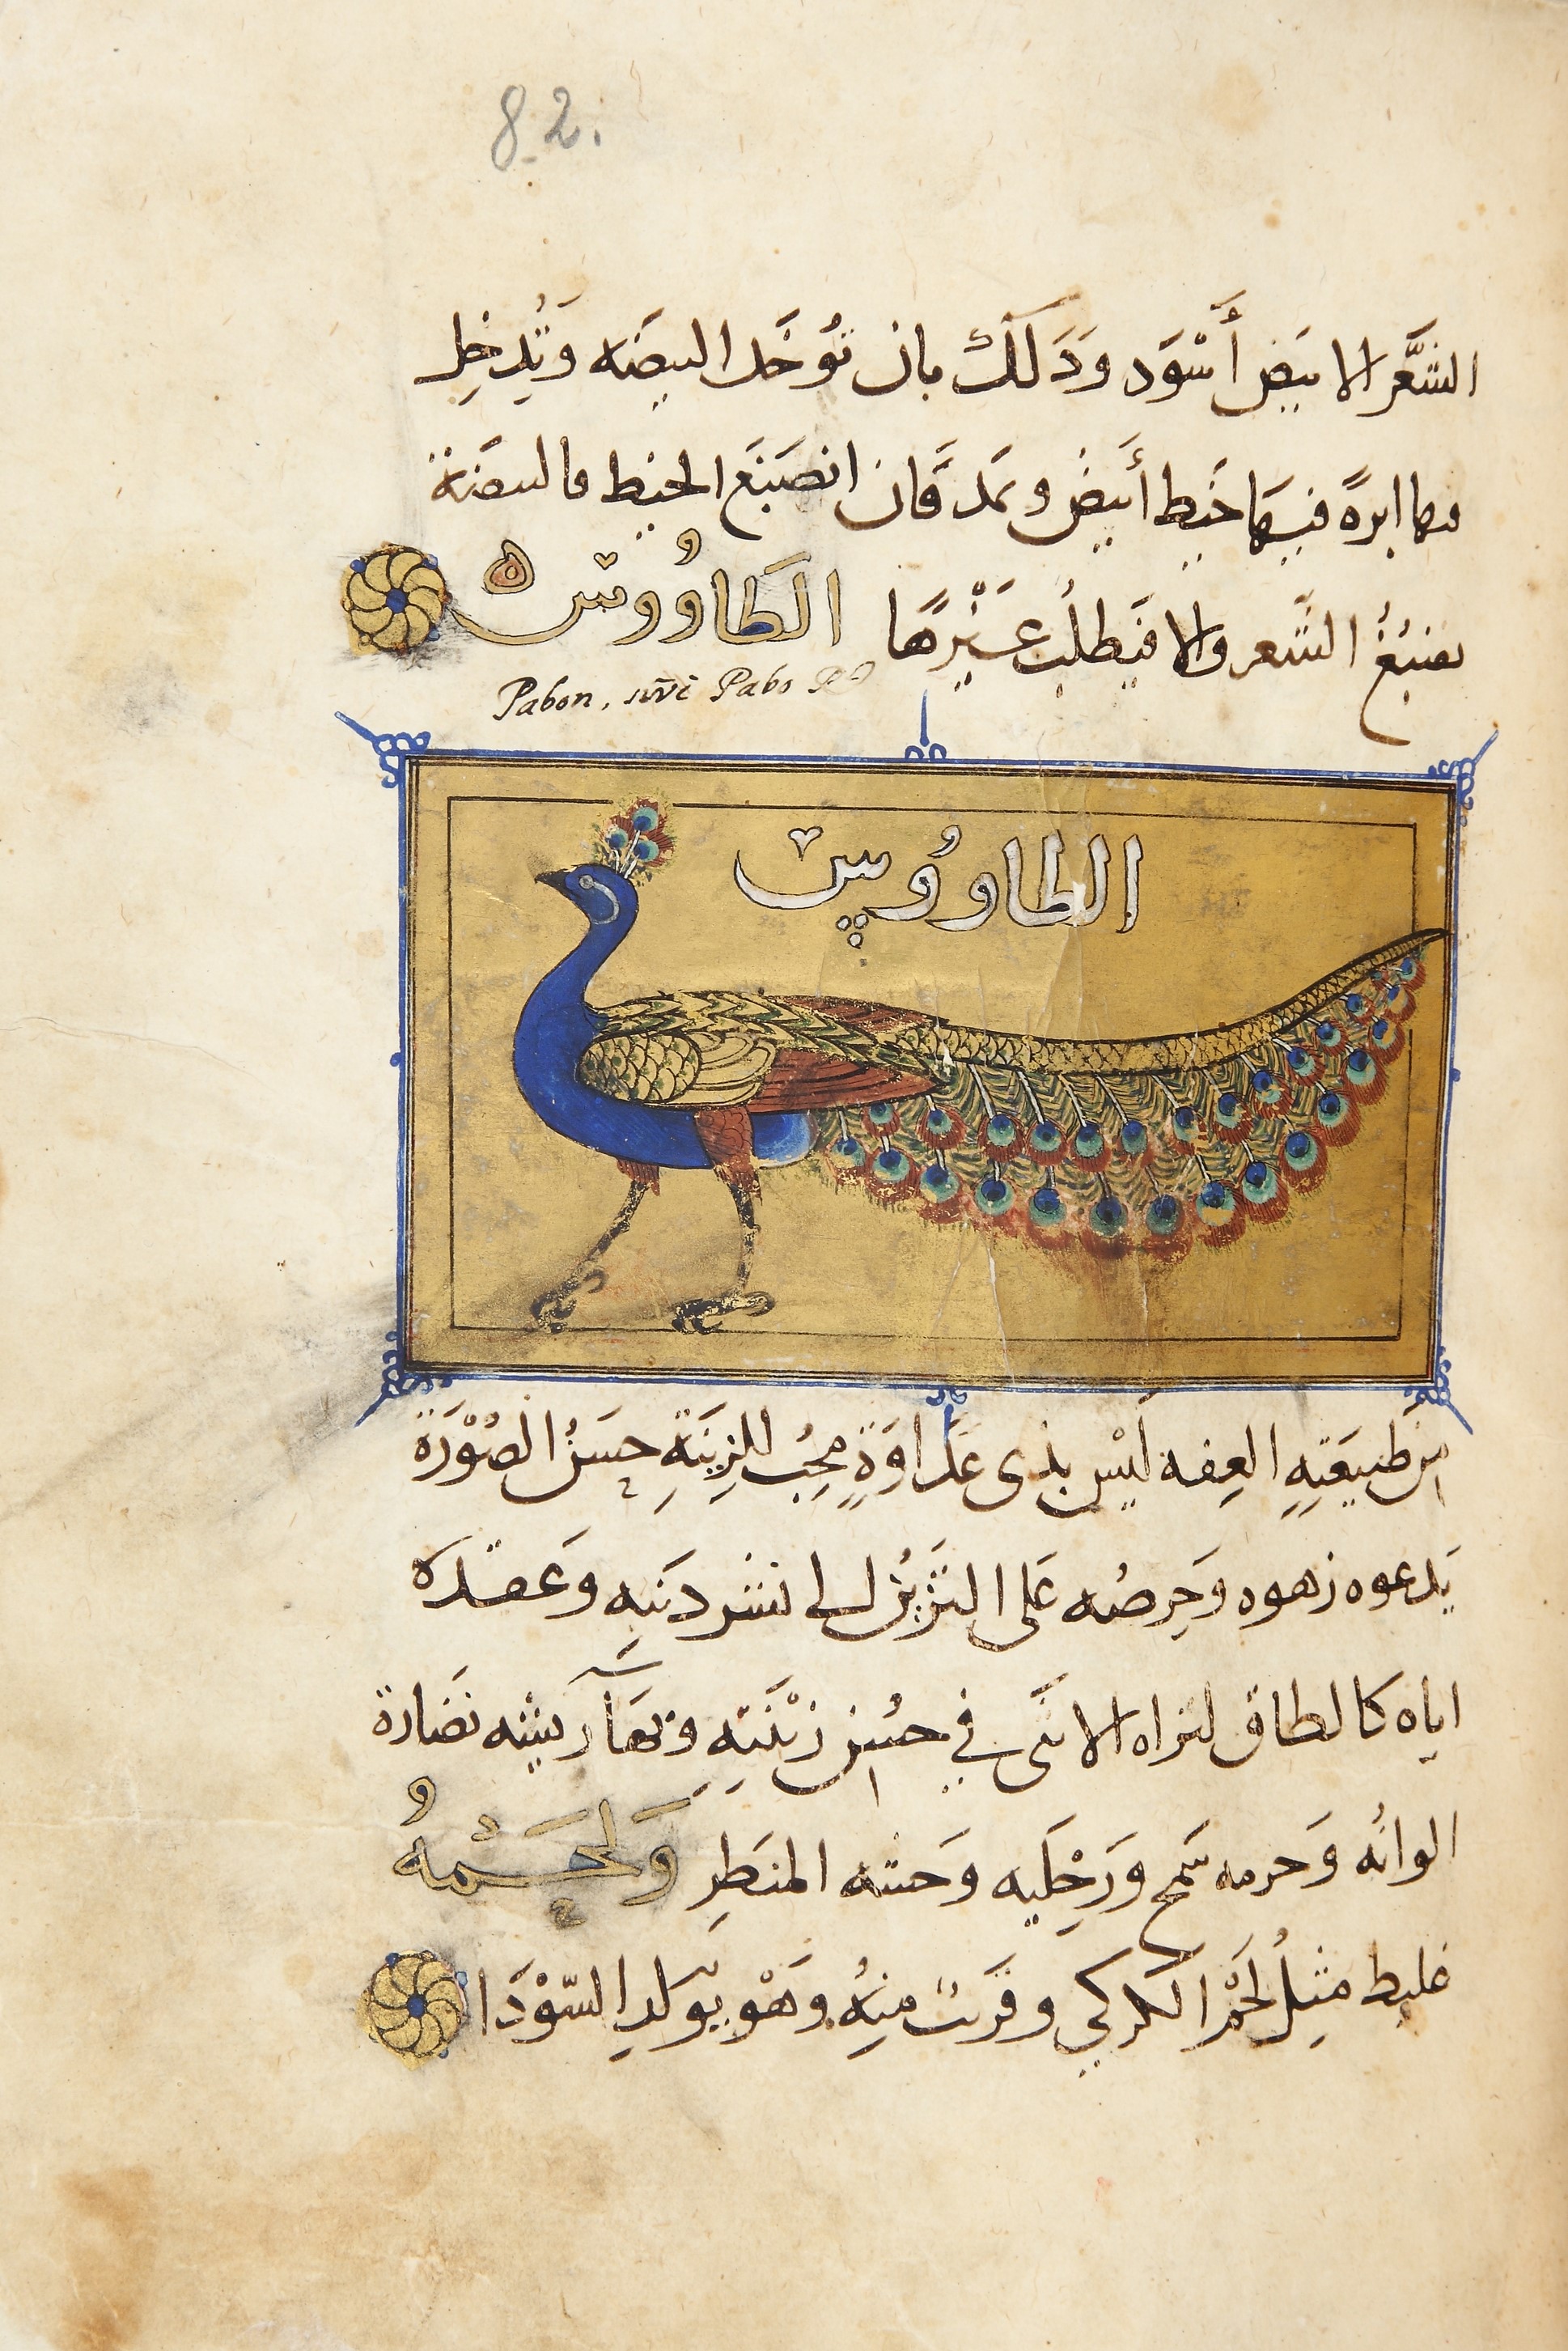 82.
الشَّعَر الابيَض أَسْوَد وَدَلكَ بان تُوخَد البيضَه وَتُدخِل
فيها ابرةً فيهَا خَيط أَبيض وتمد فَان انصَبَغَ الخيط فالبيضَة
تصبُغُ الشَّعر والا فيَطلُب غَيْرهَا الطَاوُوسْ ه
Pabon, siue Pabo
الطاوُوسْ
من طَبيعَتِهِ العِفه لَيْس بذى عَدَاوَةٍ مِحِبُ للزِينَةِ حسَنُ الصُوْرَة
يَدعوه زهوه وَحِرصُه عَلى التَزيُن الى نشر دَنبِه وَعَقدَه
اياه كالطاق لتراه الانثَى في حُسْن زيْنَتِهِ وَبهَآ ريشِه نضَارة
الوانُه وَحرمه سَمج وَرَجْلَيه وَحشه المنظَرِ وَلحَمْهُ
غليط مثِلُ لَحْمُ الكركي وقَريب منِهُ وَهْو يوَلد السّوْدَا